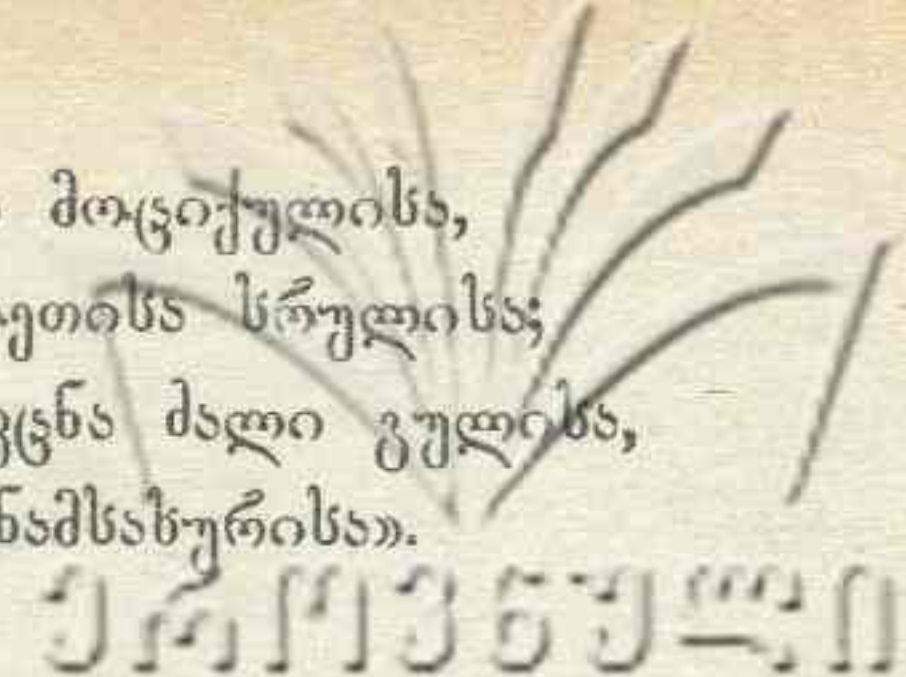 მოციქულისა,
სრულისა;
ძალი გულისა,
ნამსახურისა».
ეროვნული